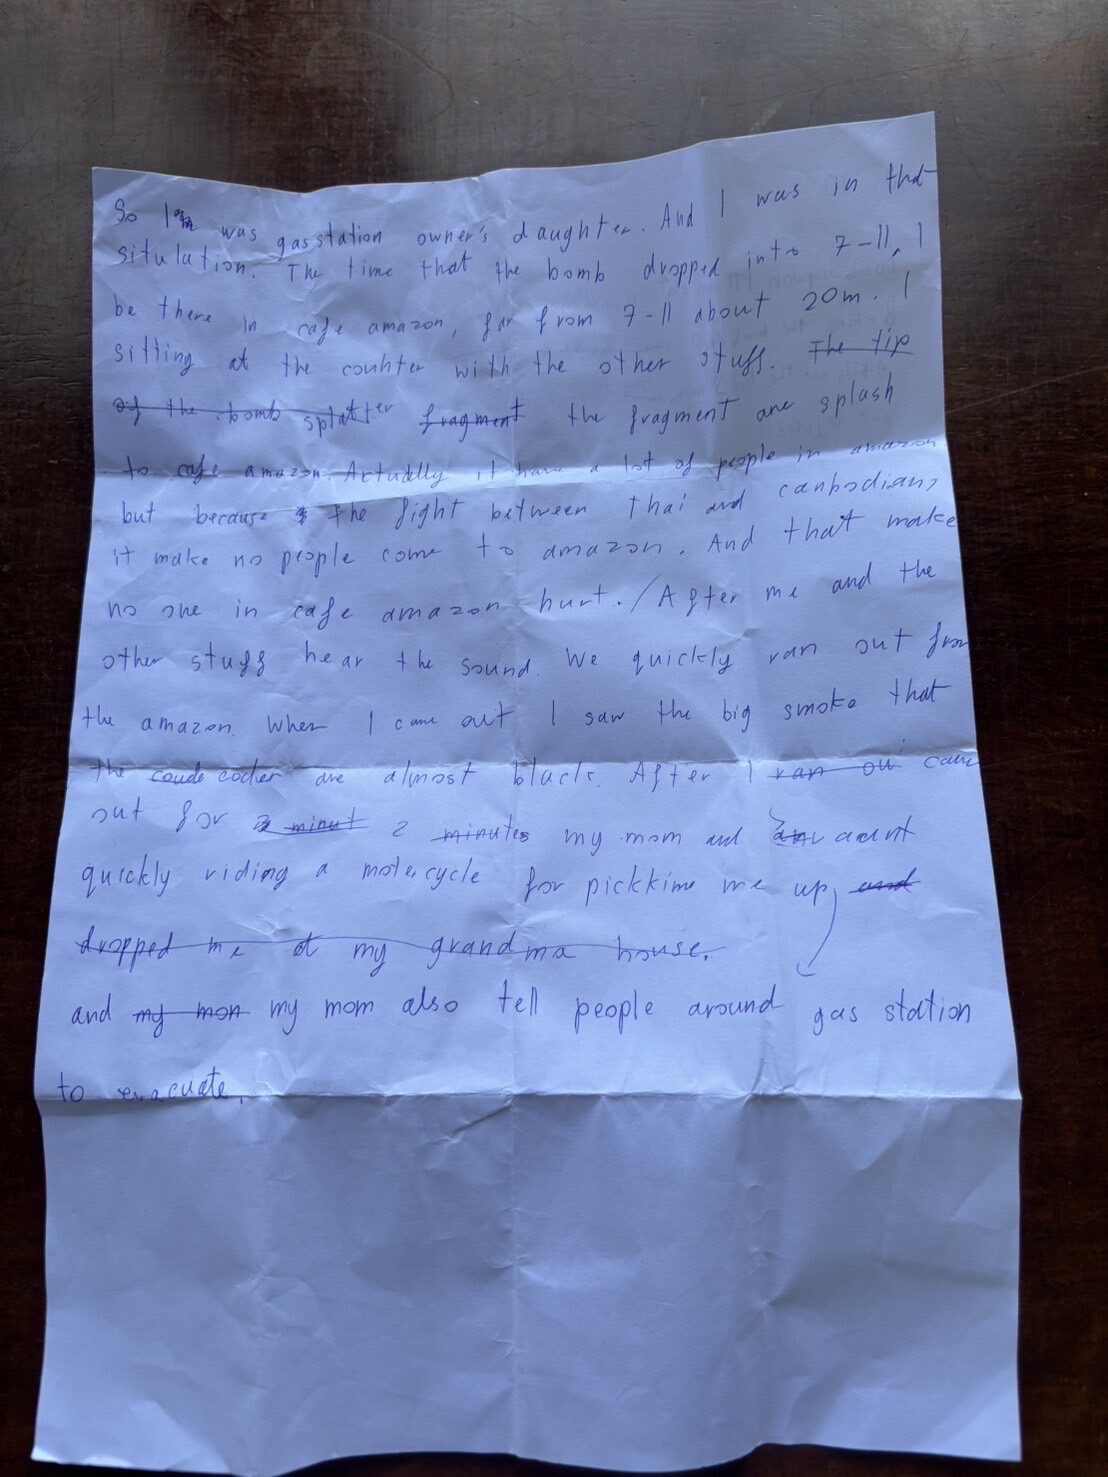 So I'm was gas station owner's daughter. And I was in that
situlation. The time that the bomb dropped into 7-11, I
be there in cafe amazon, far from 7-11 about 20m. I
sitting at the counter with the other stuff. The tip
of the bomb splatter fragment the fragment are splash
to cafe amazon. Actually it have a lot of people in amazon
but because the fight between Thai and canbodians
it make no people come to amazon. And that make
no one in cafe amazon hurt. / After me and the
other stuff hear the sound. We quickly ran out from
the amazon. When I came out I saw the big smoke that
the are almost black. After I ran ou came
out for 2 minut 2 minutes my mom and
quickly riding a motercycle for me up, and
dropped me at my grandma house.
and my mon my mom also tell people around gas station
to evacuate.